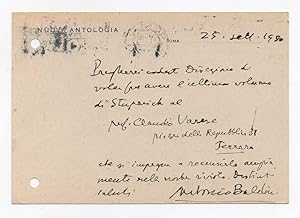 NUOVA ANTOLOGIA
ROMA 25. sett. 1950
Pregherei codesta Direzione di
voler far avere l'ultimo volume
di Stuparich al
prof. Claudio Varese
piazza della Repubblica 21
Ferrara
che si impegna a recensirlo ampia
mente nella nostra rivista. Distinti
saluti Antonio Baldini